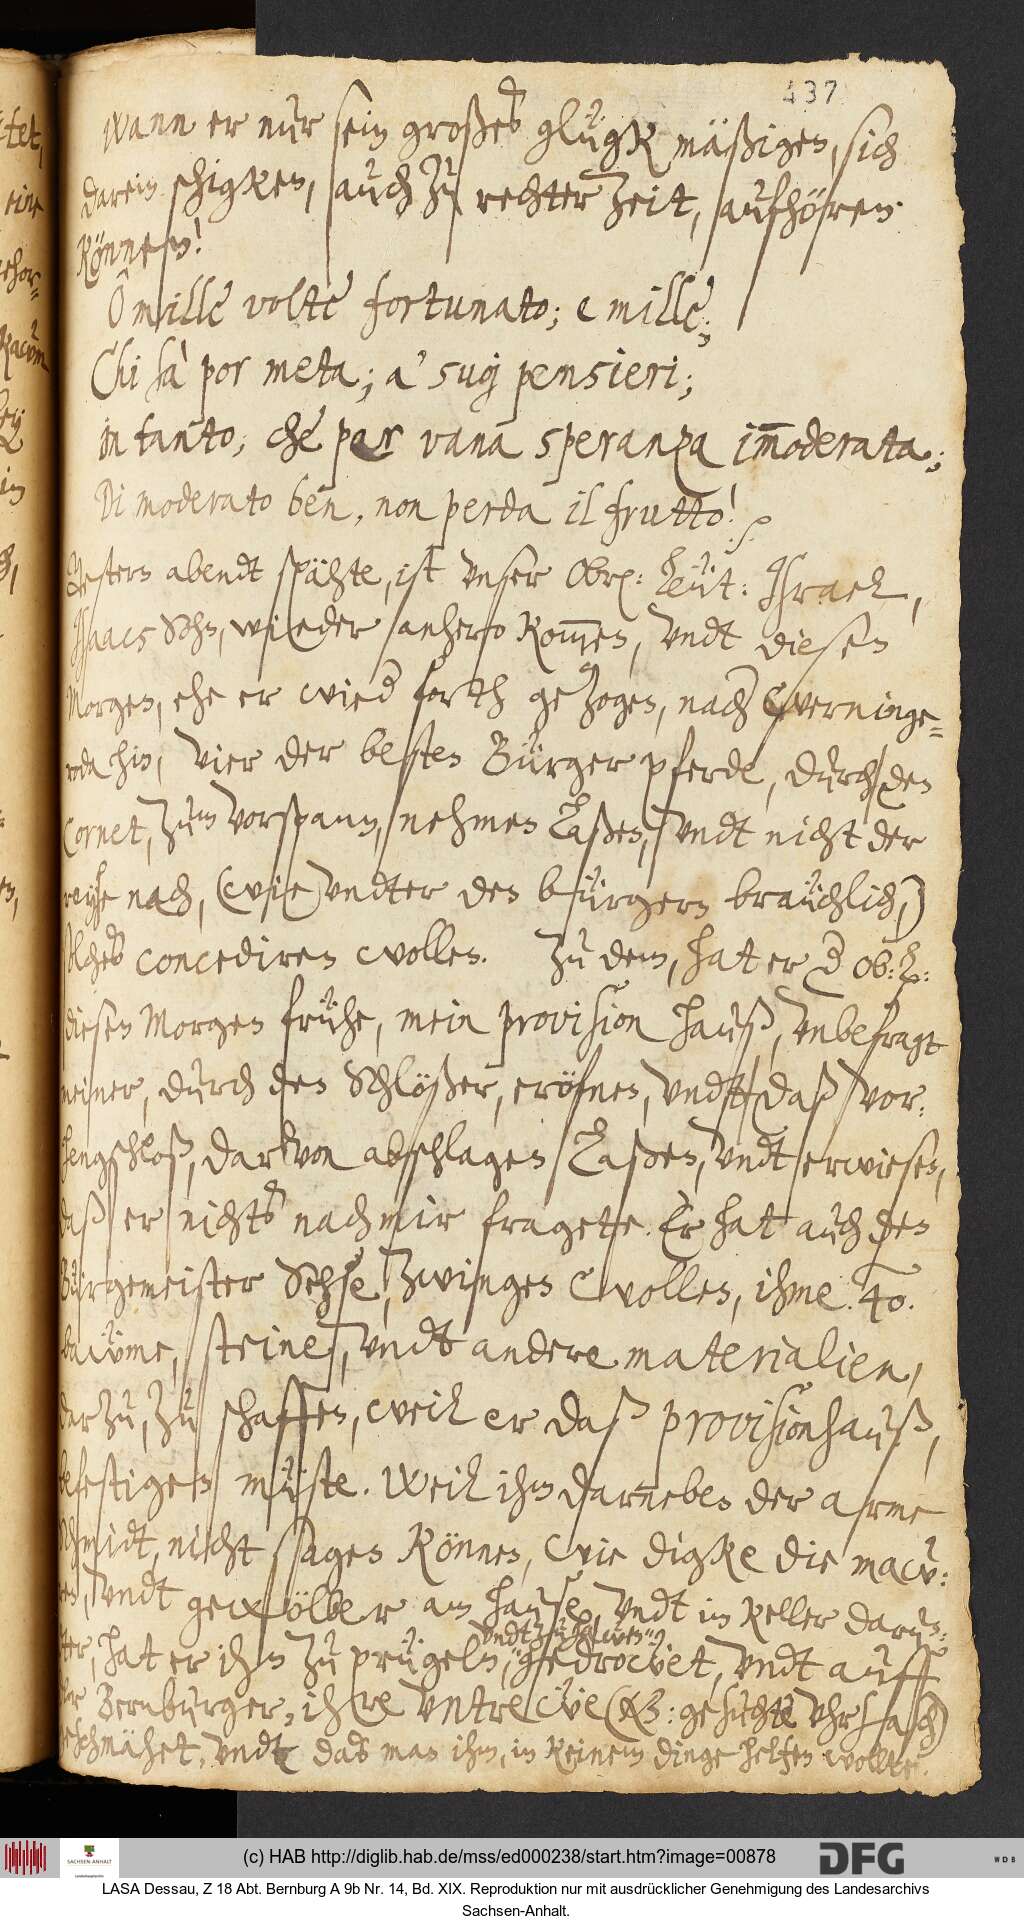 437
Wann er nur sein großes glügk mäßigen, sich
darein schigken, auch zu rechter Zeit, aufhören
können!
Ô mille volte fortunato; e mille;
Chi sà por meta; a' suoj pensieri;
in tanto, che per vana speranza im̅oderata;
Di moderato ben, non perda il frutto!
Gestern abendt spähte, ist unser Obr: Leüt: Israel,
Isaacs Sohn, wieder anhero kom̅en, undt diesen
Morgen, ehe er wied forth gezogen, nach Werninge=
roda hin, vier der besten Bürger pferde, durch den
Cornet, zum Vorspann, nehmen laßen, undt nicht der
reyhe nach, (wie undter den bürgern braüchlich,)
solches concediren wollen. Zu dem, hat er d Ob: L:
diesen Morgen frühe, mein provision hauß, unbefragt
meiner, durch den Schlößer, eröfnen, undt daß vor:
hengschloß, darvon abschlagen laßen, undt erwiesen,
daß er nichts nach mir fragete. Er hat auch den
Bürgemeister Sehse, zwingen wollen, ihme 40.
baüme, steine, undt andere materialien,
darzu, zu schaffen, weil er daß provisionhauß,
befestigen müste. Weil ihm darneben der arme
Schmidt, nicht sagen können, wie digke die mau:
ren, undt gewölber am hause, undt im keller darun:
undt zu hawen
ter, hat er ihn zu prügeln, gedrowet, undt auff
der Bernburger, ihre untrewe (NB: gesuchte Uhrsach)
geschmähet, undt das man ihm, in keinem dinge helfen wollte.
(c) HAB http://diglib.hab.de/mss/ed000238/start.htm?image=00878
SACHSEN-ANHALT
DFG
WDB
LASA Dessau, Z 18 Abt. Bernburg A 9b Nr. 14, Bd. XIX. Reproduktion nur mit ausdrücklicher Genehmigung des Landesarchivs
Sachsen-Anhalt.